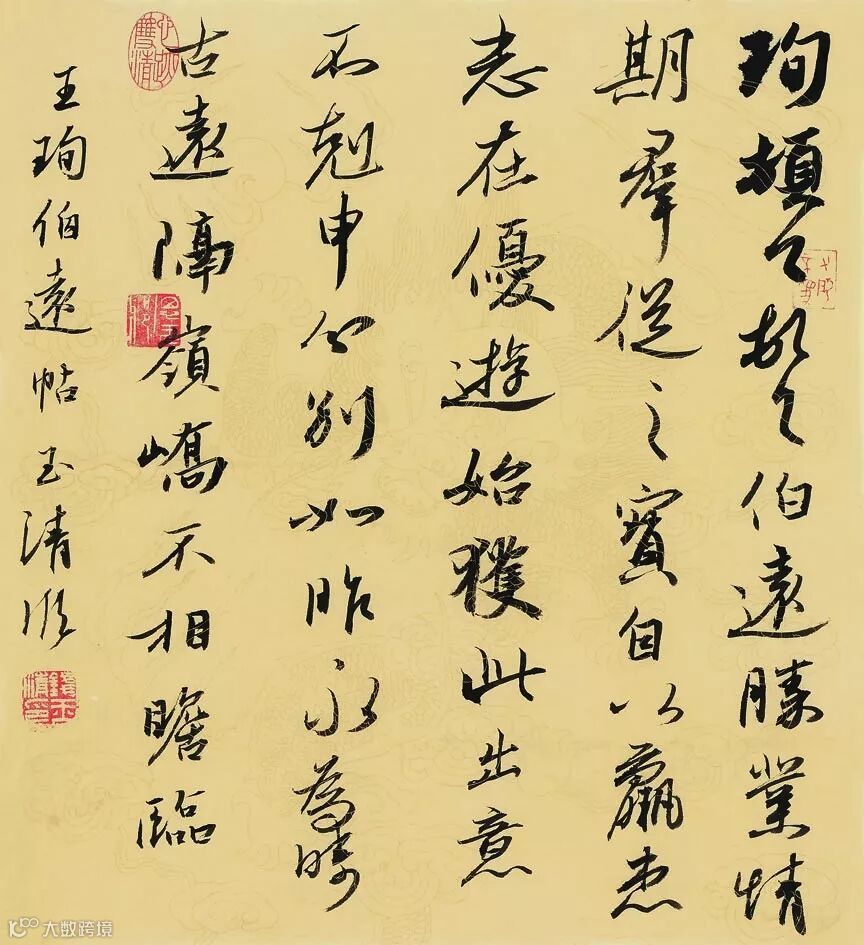 珣頓首頓首伯遠勝業情
期羣從之寶自以羸患
志在優遊始獲此出意
不剋申分別如昨永為疇
古遠隔嶺嶠不相瞻臨
王珣伯遠帖玉清
心跡雙清
錢玉清印
大数跨境